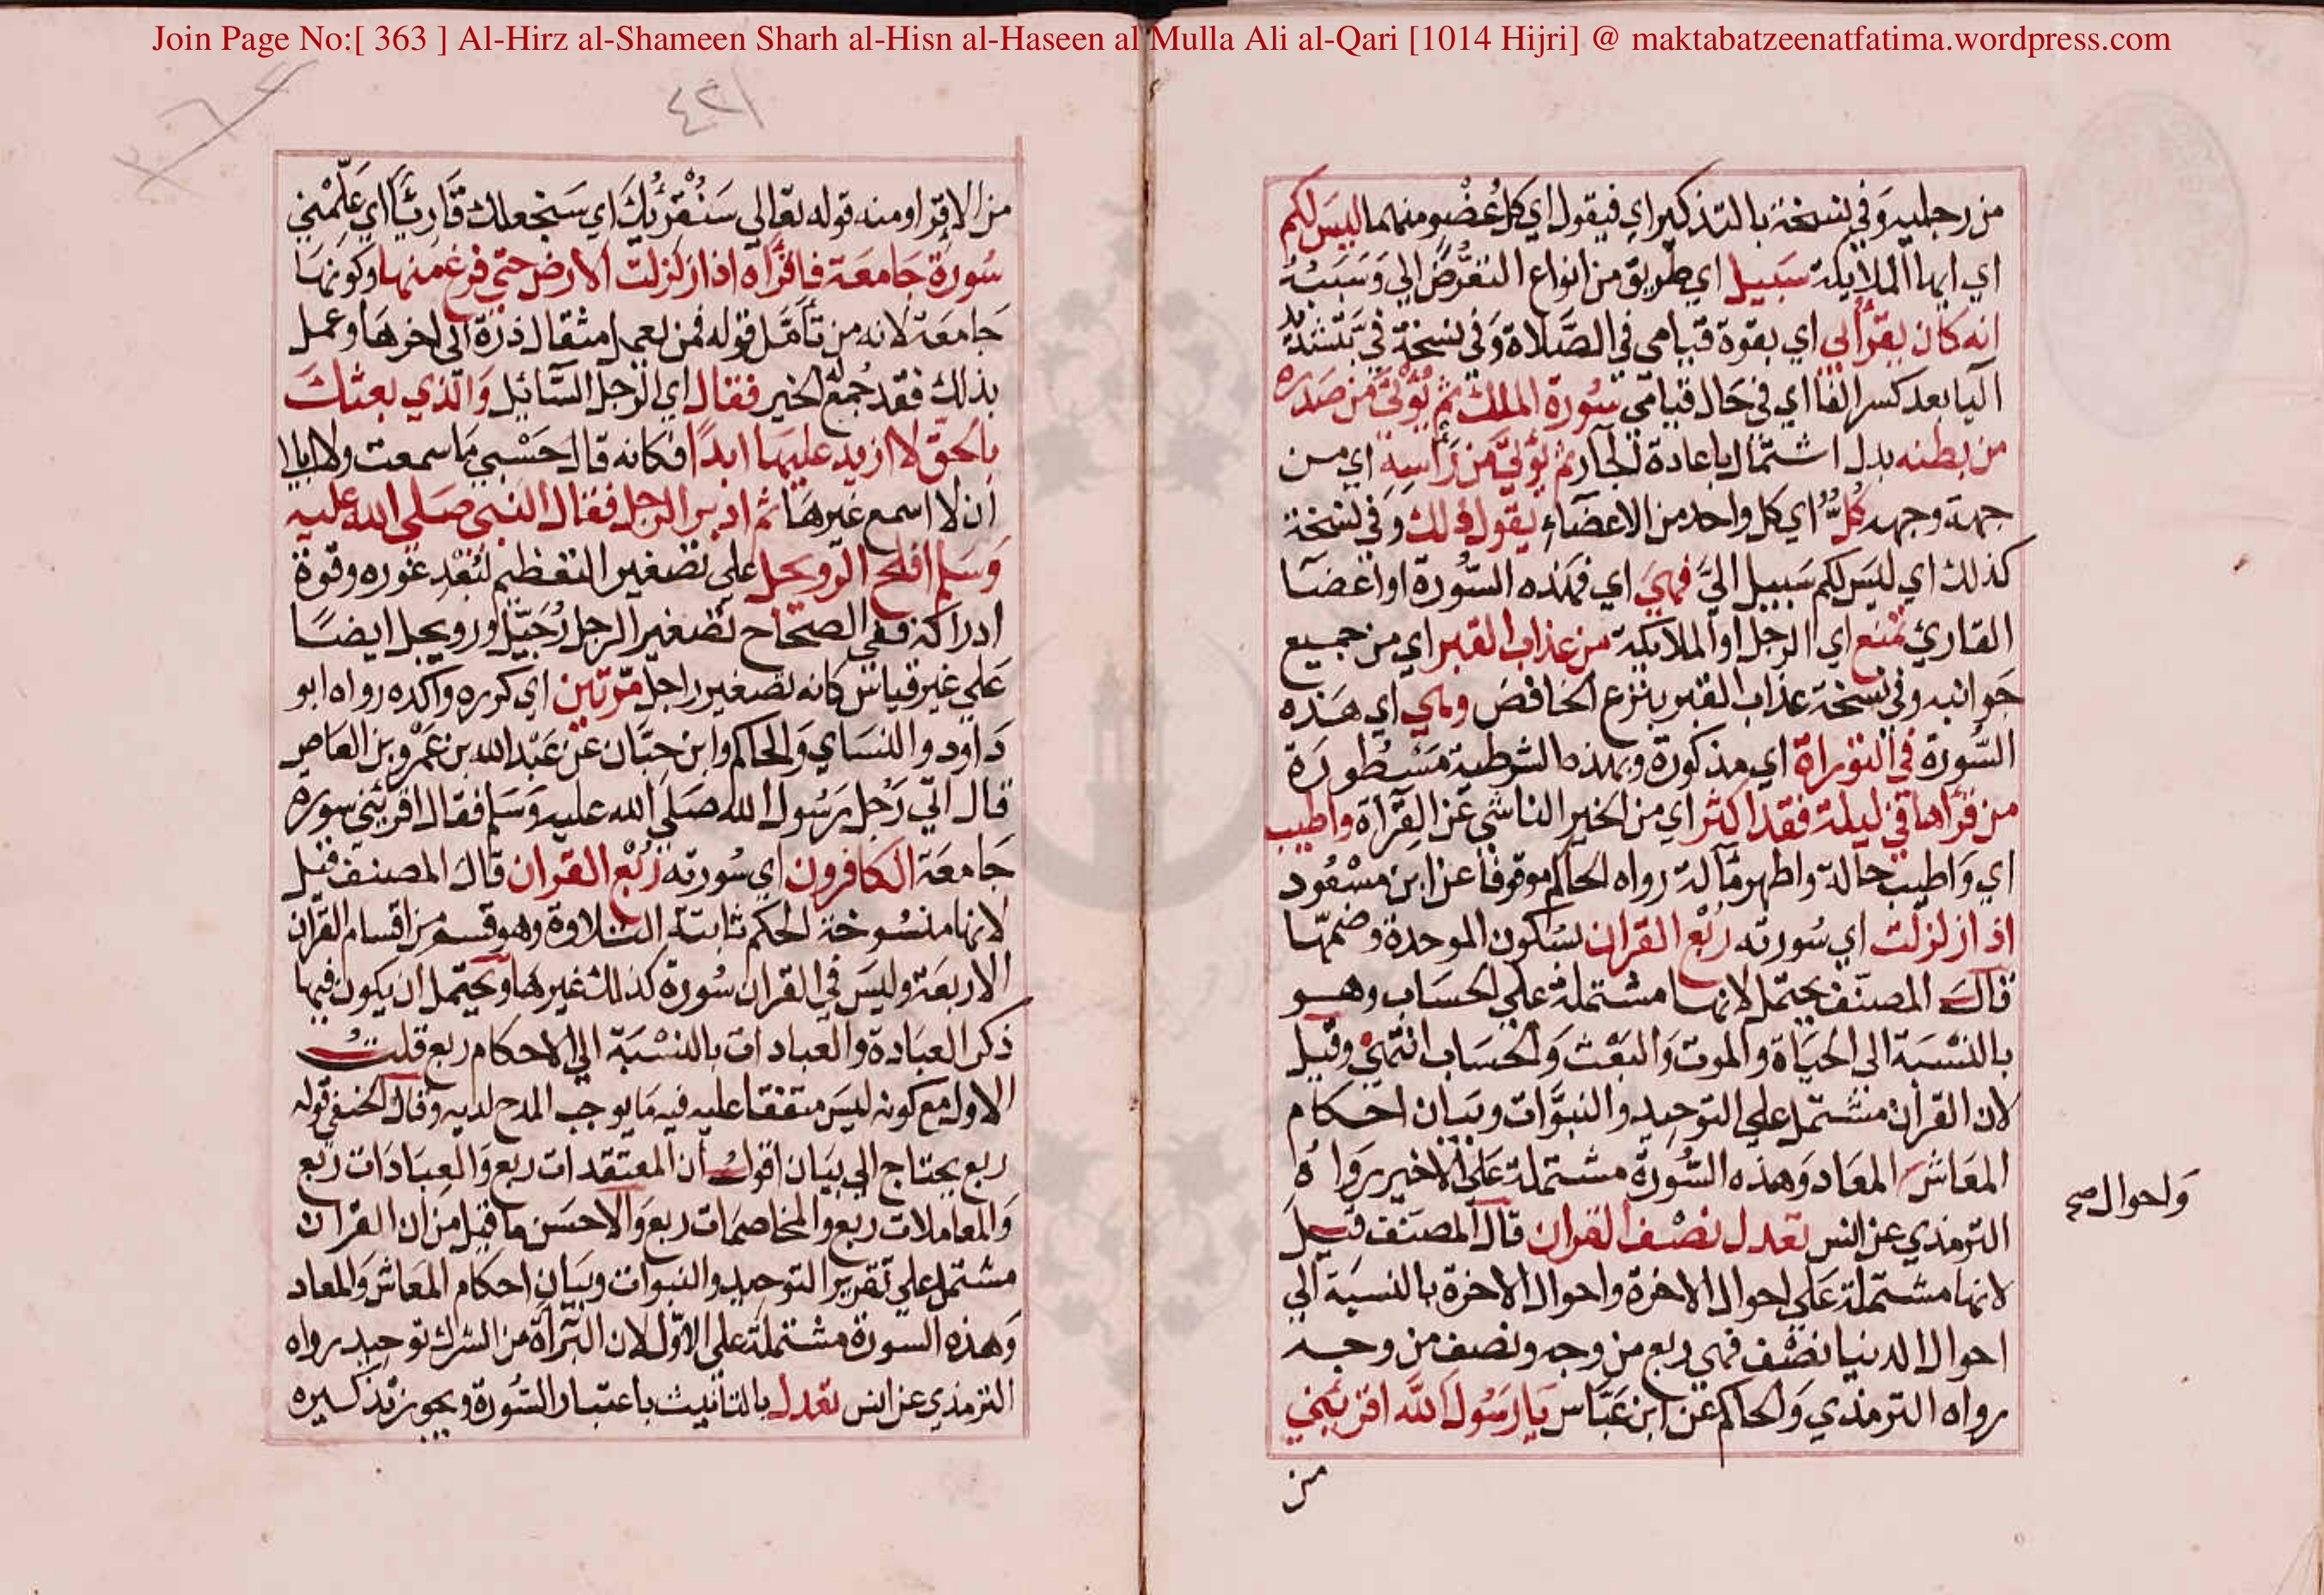 Join Page No:[ 363 ] Al-Hirz al-Shameen Sharh al-Hisn al-Haseen al Mulla Ali al-Qari [1014 Hijri] @ maktabatzeenatfatima.wordpress.com
من رجليه وفي نسخة بالتذكير اي فيقول اي كل عُضْو منهما ليسَ لكم
اي ايها الملايكة سَبيل اي طريق من انواع التعرُّض الي وَسَبَبُهُ
انه كان يقرأ لي اي بقوة قيامي في الصَّلاة وَفي نسخة فيَّ بتشديد
اليا بعد كسر الفا اي في حَال قيامي سُورة الملك ثم يُؤتي من صَدره
من بطنه بدل اشتمال باعادة الجار ثم يُؤتيَ من رَأسِهِ اي من
جهة وجهه كُلٌّ اي كل واحد من الاعضاء يقول ذلك وَفي نسخة
كذلك اي ليسَ لكم سَبيل اليَّ فهيَ اي فهذه السُّورة او اعضآ
القاريُ تمنع اي الرجل او الملايكة من عذاب القبر اي من جميع
جَوانبه وفي نسخة عذاب القبر بنزع الخافض وهي اي هَذه
السُّورة في التوراة اي مذكورة وبهذه الشرطية مَسْطورَة
من قرأها في ليلة فقد اكثر اي من الخير الناشي عَن القرآة واطيب
اي وَاطيب حالة واطهر مآلة رواه الحاكم موقوفا عن ابن مسْعُود
اذا زلزلت اي سُورته رُبْع القران بسُكون الموحدة وضمّها
قالَ المصنّف يحتمل لانها مشتملة علي الحسَاب وهو
بالنسْبَة الى الحيَاة والموت وَالبَعْث وَالحسَاب انتهي وقيل
لان القران مشتمل علي التوحيد والنبوَّات وبيَان احكام
المعَاش المعَاد وَهذه السُّورة مشتملة عَلي الاخير رواهُ
وَاحوال صح
الترمذي عن انس تعدل نصْف القران قال المصنف قيل
لانها مشتملة عَلي احوال الاخرة واحوال الاخرة بالنسبَة الي
احوال الدنيا نصْف فهي ربع من وجه ونصف من وجه
رواه الترمذي وَالحاكم عن ابن عَبّاس يَا رَسُولَ اللَّه اقرِئني
من
٤٢١
من الاِقرا ومنه قوله تعَالي سَنُقْرئُكَ اي سَنجعلك قارِئًا اي عَلّمْني
سُورَة جَامعَة فاقرَأه اذا زلزلت الارض حتي فرغ منها وكونهَا
جَامعَة لانه من تأمَّل قوله فمن يعمل مثقال ذرّة الى اخرهَا وعمل
بذلك فقد جُمع له الخير فقال اي الرّجل السَّائل وَالّذي بعثكَ
بالحقّ لا ازيد عليهَا ابدًا فكانه قال حَسْبي مَا سمعت ولا ابالي
ان لا اسمع غيرهَا ثم ادبر الرجل فقال النبي صَلي الله عليه
وَسَلم افلح الرّويجل على تصغير التعظيم لبُعْدِ غَوره وقوة
ادراكه ففي الصحَاح تصْغير الرجل رُجَيْل ورويجل ايضًا
عَلي غير قياس كانه تصغير راجل مَرّتين اي كرره واكده رواه ابو
دَاود والنسَاي وَالحاكم وابن حبَّان عن عَبْد الله بن عَمْرو بن العَاص
قال اتي رَجُل رَسُول الله صَلي الله عليه وَسَلم فقال اقرئني سوره
جَامعَة الكافرون اي سُورته رُبْع القران قالَ المصنف قيل
لانها منسُوخة الحكم ثابتة التلاوة وهو قسم من اقسام القرآن
الاربعَة وليسَ في القران سُورة كذلك غيرهَا ويحتمل ان يكون فيها
ذكر العبَادة والعبادات بالنسْبَة الي الاحكام ربع قلتُ
الاول مع كونه ليسَ متفقا عليه فيه مَا يوجب المدح لديه وقال الحنفي قوله
ربع يحتاج الي بيَان اقول ان المعتقدات ربع وَالعبَادَات ربع
وَالمعاملات ربع والمخاصمَات ربع وَالاحسَن ما قيل من ان القران
مشتمل علي تقرير التوحيد والنبوات وبيَان احكام المعَاش وَالمعاد
وَهذه السورة مشتملة علي الاوّل لان البَرآة من الشرك توحيد رواه
الترمذي عن انس تعدل بالتانيث باعتبار السُّورة ويجوز تذكيره